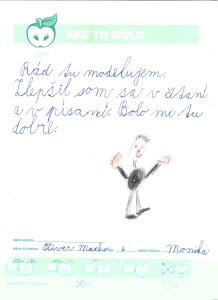 AKÉ TO BOLO
Rád tu modelujem.
Zlepšil som sa v čítaní
a v písaní. Bolo mi tu
dobre.
Oliver Macho 6 Monika